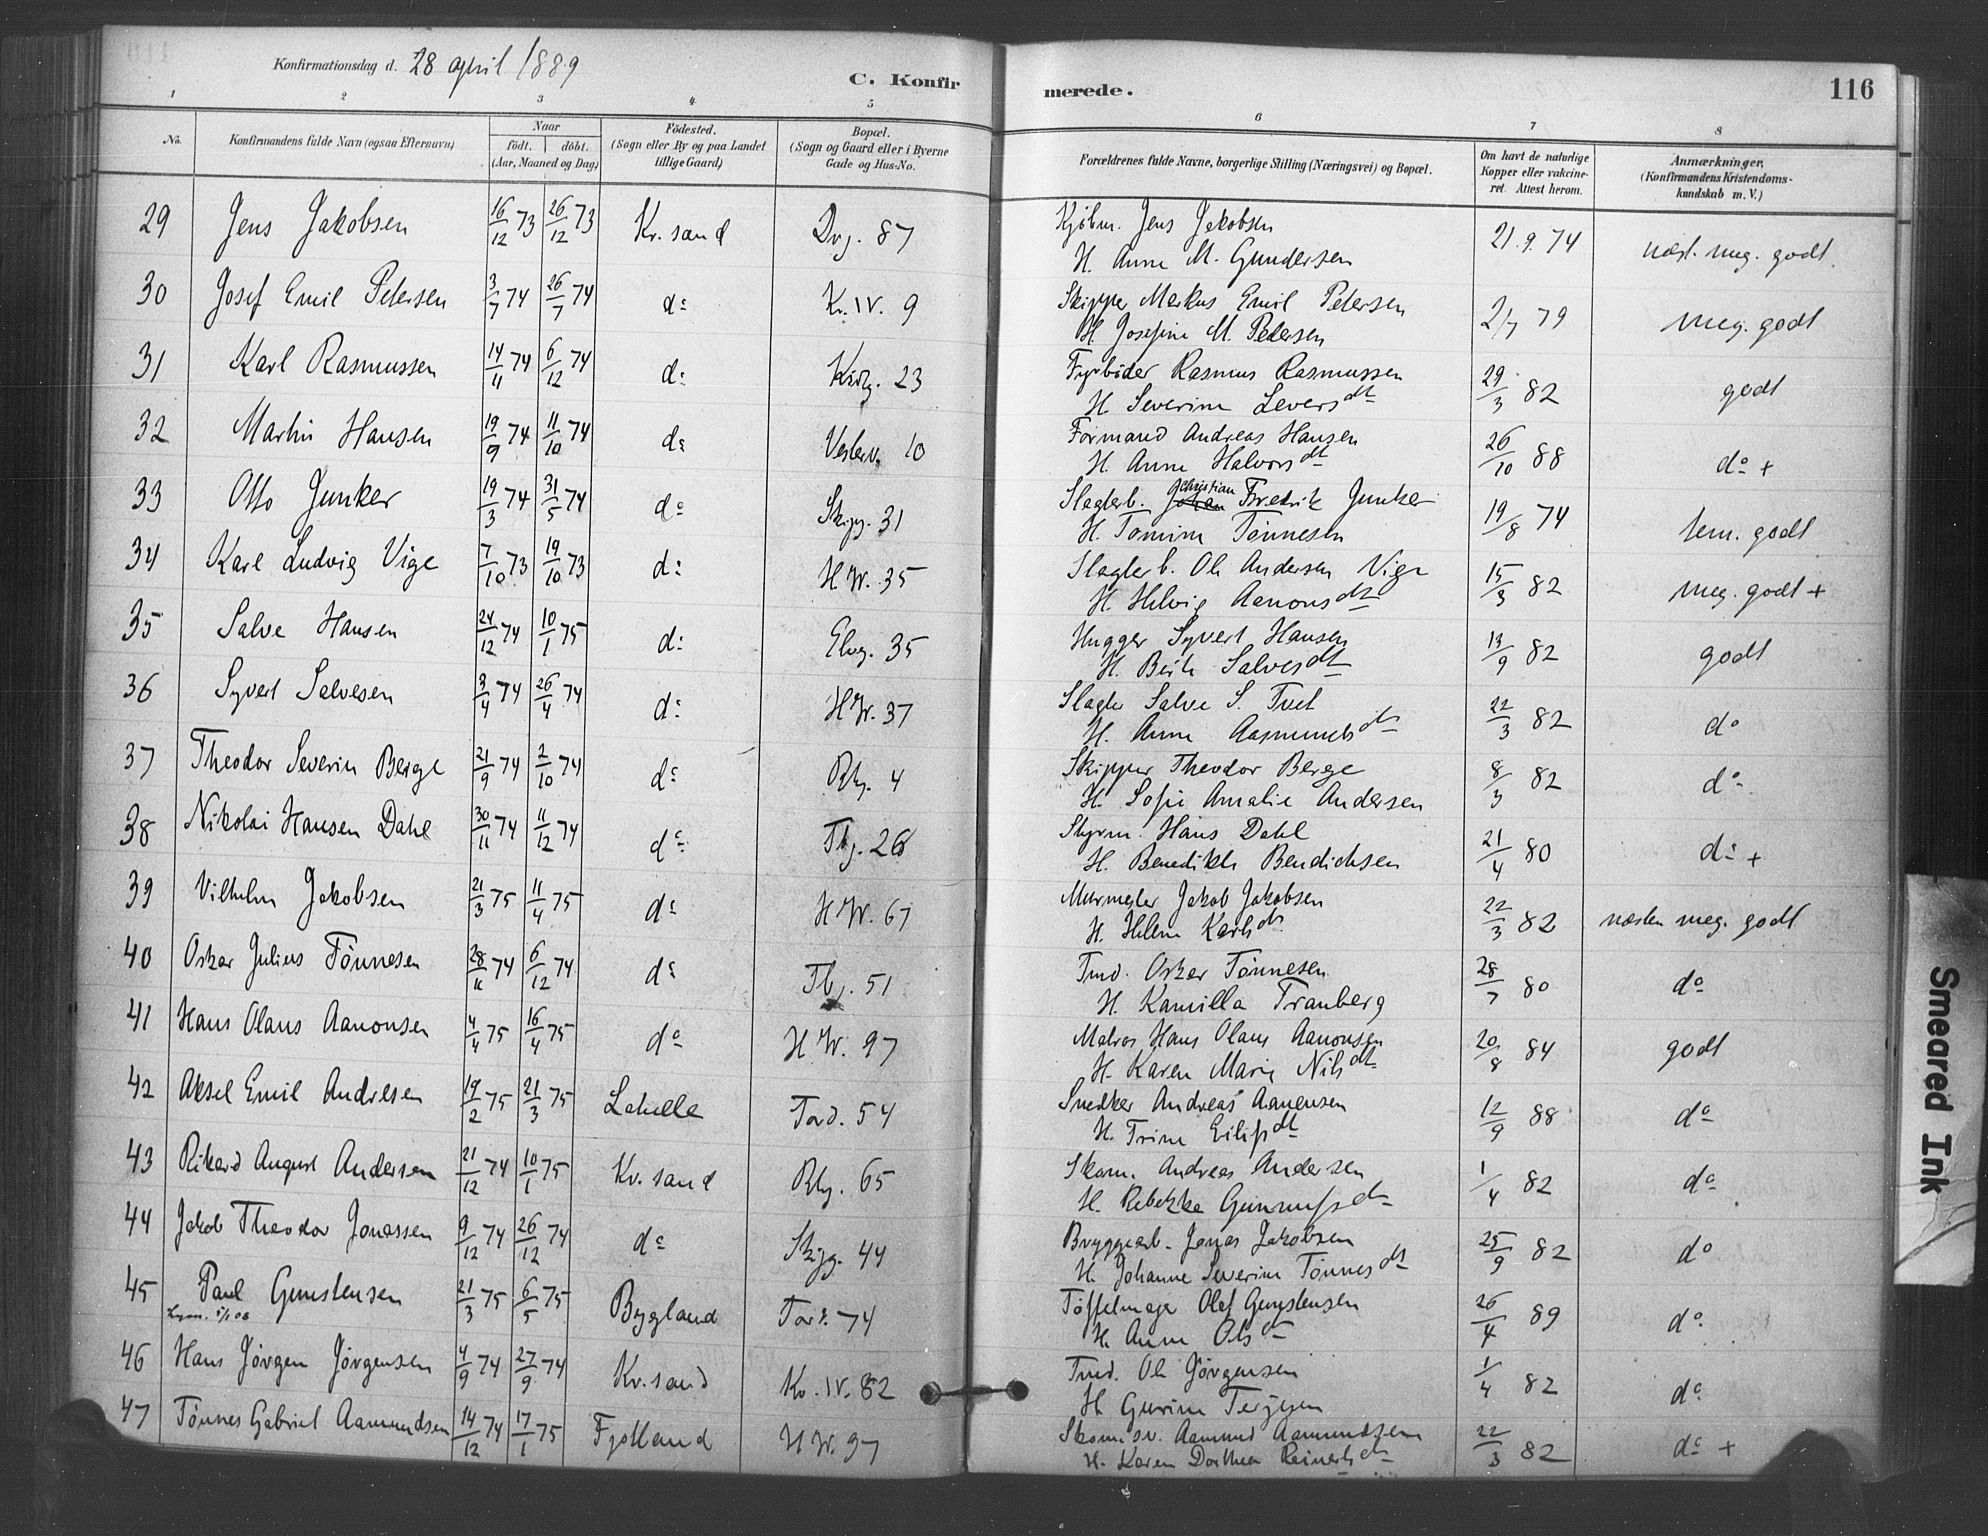 Konfirmationsdag d. 28 april 1889
C. Konfir
merede.
116
1 2 3 4 5 6 7 8
No.
Konfirmandens fulde Navn (ogsaa Efternavn)
Naar
födt. döbt.
(Aar, Maaned og Dag)
Födested.
(Sogn eller By og paa Landet
tillige Gaard)
Bopæl.
(Sogn og Gaard eller i Byerne
Gade og Hus-No.
Forældrenes fulde Navne, borgerlige Stilling (Næringsvei) og Bopæl.
Om havt de naturlige
Kopper eller vakcine-
ret. Attest herom.
Anmærkninger.
(Konfirmandens Kristendoms-
kundskab m. V.)
29 Jens Jakobsen 16/12 73 26/12 73 Kr.sand Drg. 87 Kjøbm. Jens Jakobsen 21.9.74 næst. meg. godt.
H. Anne M. Gundersen
30 Josef Emil Petersen 3/7 74 26/7 74 do Kr.IV. 9 Skipper Markus Emil Petersen 2/7 79 meg. godt
H. Josefine M. Petersen
31 Karl Rasmussen 14/11 74 6/12 74 do 23 Fyrbøder Rasmus Rasmussen 29/3 82 godt
H. Severine Leversdt
32 Martin Hansen 19/9 74 11/10 74 do Vesterv. 10 Formand Andreas Hansen 26/10 88 do +
H. Anne Halvorsdt
33 Otto Junker 19/3 74 31/5 74 do Skipg. 31 Slagterb. Christian Fredrik Junker 19/8 74 tem. godt
H. Tomine Tønnesen
34 Karl Ludvig Vige 7/10 73 19/10 73 do H.W. 35 Slagterb. Ole Andersen Vige 15/3 82 meg. godt +
H. Helvig Aanonsdt
35 Salve Hansen 24/12 74 10/1 75 do Elvg. 35 Hugger Syvert Hansen 13/9 82 godt
H. Berte Salvesdt
36 Syvert Salvesen 3/4 74 26/4 74 do H.W. 37 Slagter Salve S. Tveit 22/3 82 do
H. Anne Aasmundsdt
37 Theodor Severin Berge 21/9 74 2/10 74 do Rhg. 4 Skipper Theodor Berge 8/3 82 do
H. Sofie Amalie Andersen
38 Nikolai Hansen Dahl 30/11 74 11/12 74 do Tbg. 26 Styrm. Hans Dahl 21/4 80 do +
H. Benedikte Bendichsen
39 Vilhelm Jakobsen 21/3 75 11/4 75 do H.W. 67 Murmester Jakob Jakobsen 22/3 82 næsten meg. godt
H. Helene Karlsdt
40 Oskar Julius Tönnesen 28/11 74 6/12 74 do Tbg. 51 Tmd. Oskar Tønnesen 28/7 80 do
H. Kamilla Tranberg
41 Hans Olaus Aanonsen 4/4 75 16/4 75 do H.W. 97 Matros Hans Olaus Aanonsen 20/8 84 godt
H. Karen Marie Nilsdt
42 Aksel Emil Andresen 19/2 75 21/3 75 Lahelle Tord. 54 Snedker Andreas Aanensen 12/9 88 do
H. Trine Eilifsdt
43 Rikard August Andersen 21/12 74 10/1 75 Kr.sand Rhg. 65 Skom. Andreas Andersen 1/4 82 do
H. Rebekka Gunnufsdt
44 Jakob Theodor Jonassen 9/12 74 26/12 74 do Skipg. 44 Bryggerarb. Jonas Jakobsen 25/9 82 do
H. Johanne Severine Tønnesdt
45 Paul Gunstensen 21/3 75 6/5 75 Bygland Tord. 74 Töffelmager Olaf Gunstensen 26/4 89 do
H. Anne Olsdt
46 Hans Jörgen Jörgensen 4/9 74 27/9 74 Kr.sand Kr.IV. 82 Tmd. Ole Jörgensen 1/4 82 do
H. Gurine Terjesen
47 Tönnes Gabriel Aamundsen 14/12 74 17/1 75 Fjotland H.W. 97 Skom.sv. Aamund Aamundsen 22/3 82 do +
H. Karen Dorthea Reinertsdt
Smeared Ink